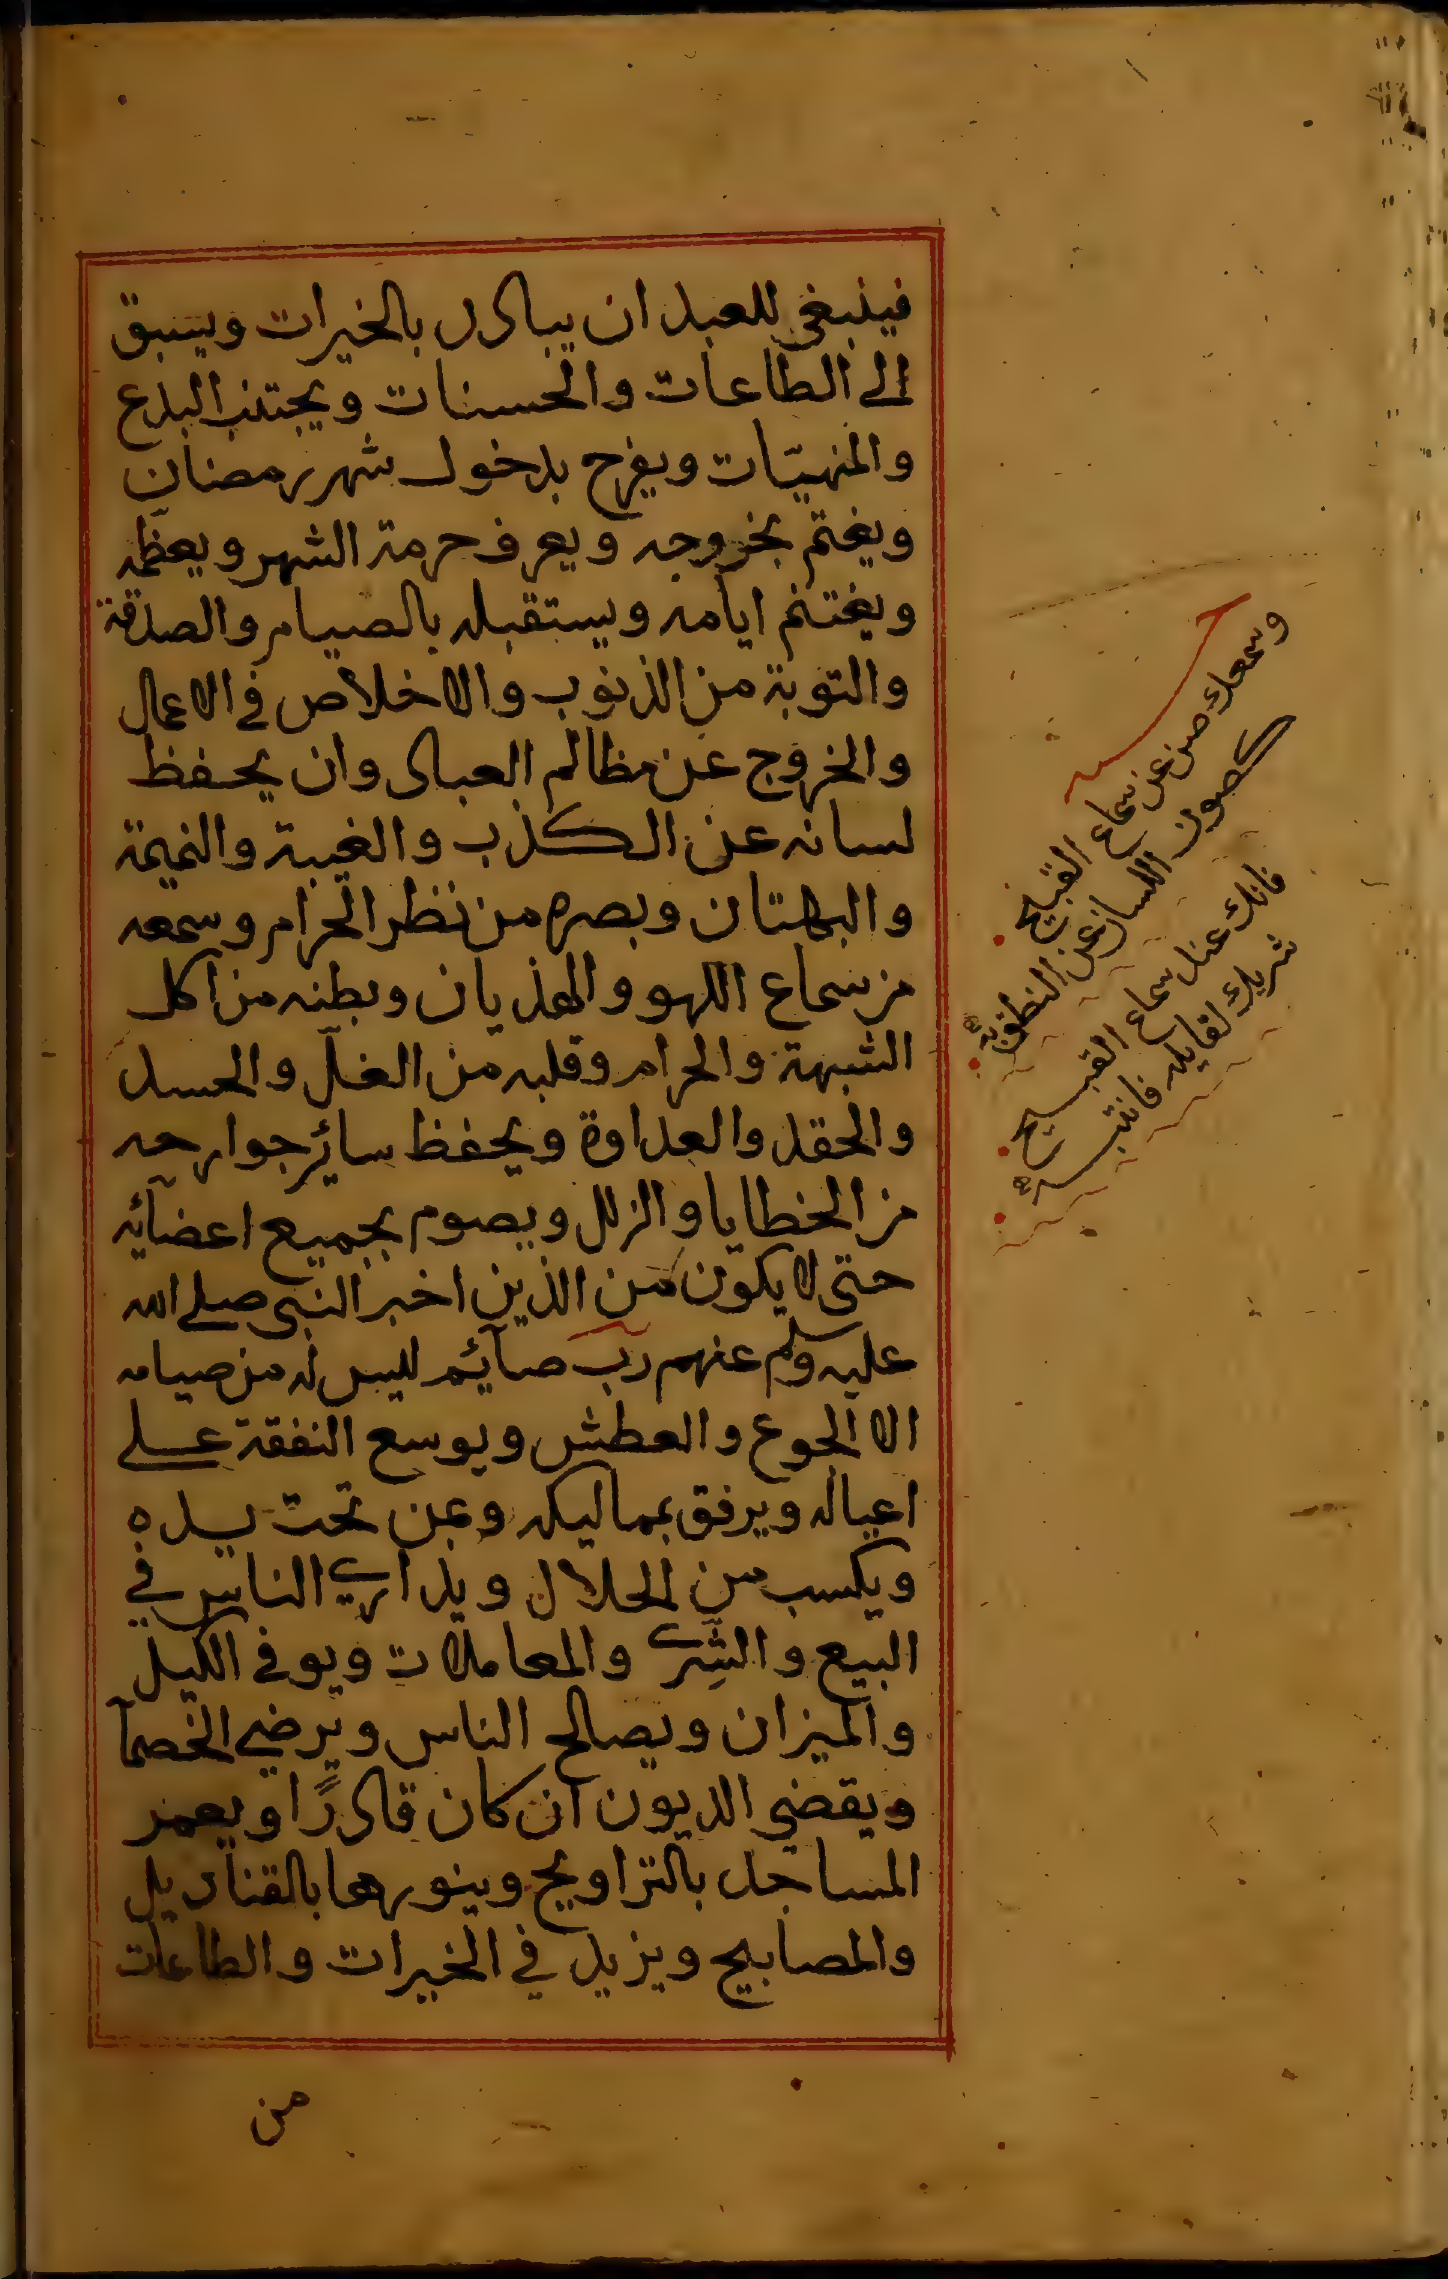 فينبغي للعبد ان يبادر بالخيرات ويسبق
الى الطاعات والحسنات ويجتنب البدع
والمنهيّات ويفرح بدخول شهر رمضان
ويغتم بخروجه ويعرف حرمة الشهر ويعظّمه
ويغتنم ايامه ويستقبله بالصيام والصدقة
والتوبة من الذنوب والاخلاص في الاعمال
والخروج عن مظالم العباد وان يحفظ
لسانه عن الكذب والغيبة والنميمة
والبهتان وبصره من نظر الحرام وسمعه
من سماع اللهو والهذيان وبطنه من اكل
الشبهة والحرام وقلبه من الغلّ والحسد
والحقد والعداوة ويحفظ سائر جوارحه
من الخطايا والزلل ويصوم بجميع اعضآئه
حتى لا يكون من الذين اخبر النبى صلى الله
عليه وسلم عنهم ربّ صآئم ليس له من صيامه
الا الجوع والعطش ويوسع النفقة على
اعياله ويرفق بمماليكه وبمن تحت يده
ويكسب من الحلال ويداري الناس في
البيع والشّرى والمعاملات ويوفي الكيل
والميزان ويصالح الناس ويرضي الخصمآ
ويقضي الديون ان كان قادرًا ويعمر
المساجد بالتراويح وينورها بالقناديل
والمصابيح ويزيد في الخيرات والطاعات
من
وسمعك صن عن سماع القبيح
كصون اللسان عن النطق به
فانك عند سماع القبيح
شريك لقايله فانتبه